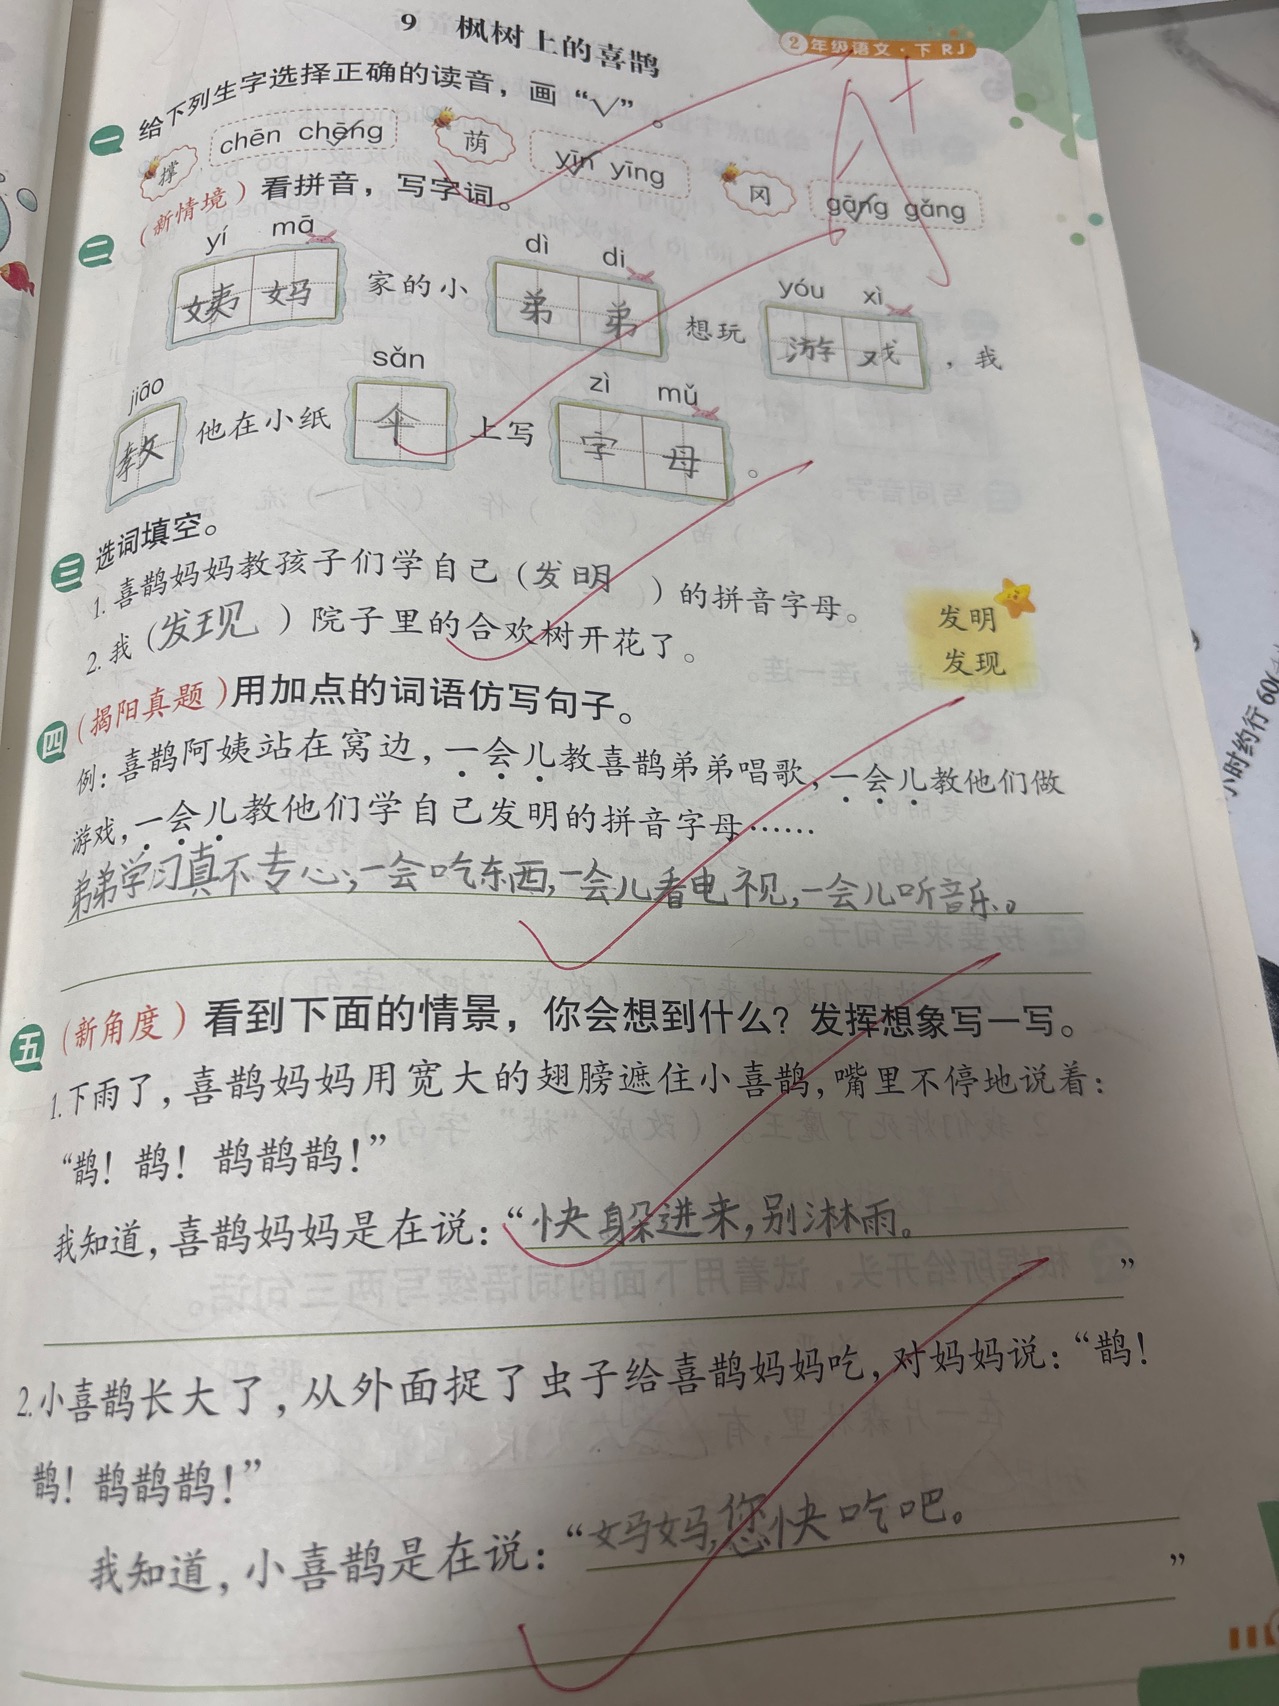 9 枫树上的喜鹊
2年级语文·下 RJ
A+
一 给下列生字选择正确的读音，画“√”。
撑 chēn chēng 荫 yīn yīng 冈 gāng gǎng
二 (新情境) 看拼音，写字词。
yí mā dì di yóu xì
姨妈 家的小 弟弟 想玩 游戏 ，我
jiāo sǎn zì mǔ
教 他在小纸 伞 上写 字母 。
三 选词填空。
1. 喜鹊妈妈教孩子们学自己（发明）的拼音字母。
2. 我（发现）院子里的合欢树开花了。
发明
发现
四 (揭阳真题) 用加点的词语仿写句子。
例：喜鹊阿姨站在窝边，一会儿教喜鹊弟弟唱歌，一会儿教他们做
游戏，一会儿教他们学自己发明的拼音字母……
弟弟学习真不专心，一会吃东西，一会儿看电视，一会儿听音乐。
五 (新角度) 看到下面的情景，你会想到什么？发挥想象写一写。
1. 下雨了，喜鹊妈妈用宽大的翅膀遮住小喜鹊，嘴里不停地说着：
“鹊！鹊！鹊鹊鹊！”
我知道，喜鹊妈妈是在说：“快躲进来，别淋雨。
”
2. 小喜鹊长大了，从外面捉了虫子给喜鹊妈妈吃，对妈妈说：“鹊！
鹊！鹊鹊鹊！”
我知道，小喜鹊是在说：“妈妈，您快吃吧。
”
小时约行 60